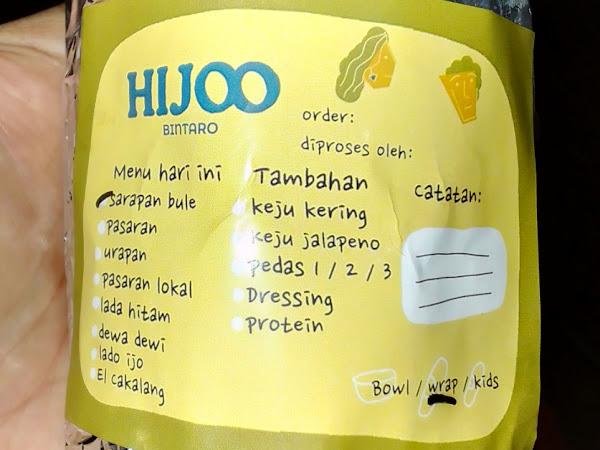 HIJOO
BINTARO
order:
diproses oleh:
Menu hari ini
sarapan bule
pasaran
urapan
pasaran lokal
lada hitam
dewa dewi
lado ijo
El cakalang
Tambahan
keju kering
keju jalapeno
pedas 1 / 2 / 3
Dressing
protein
catatan:
Bowl / wrap / kids